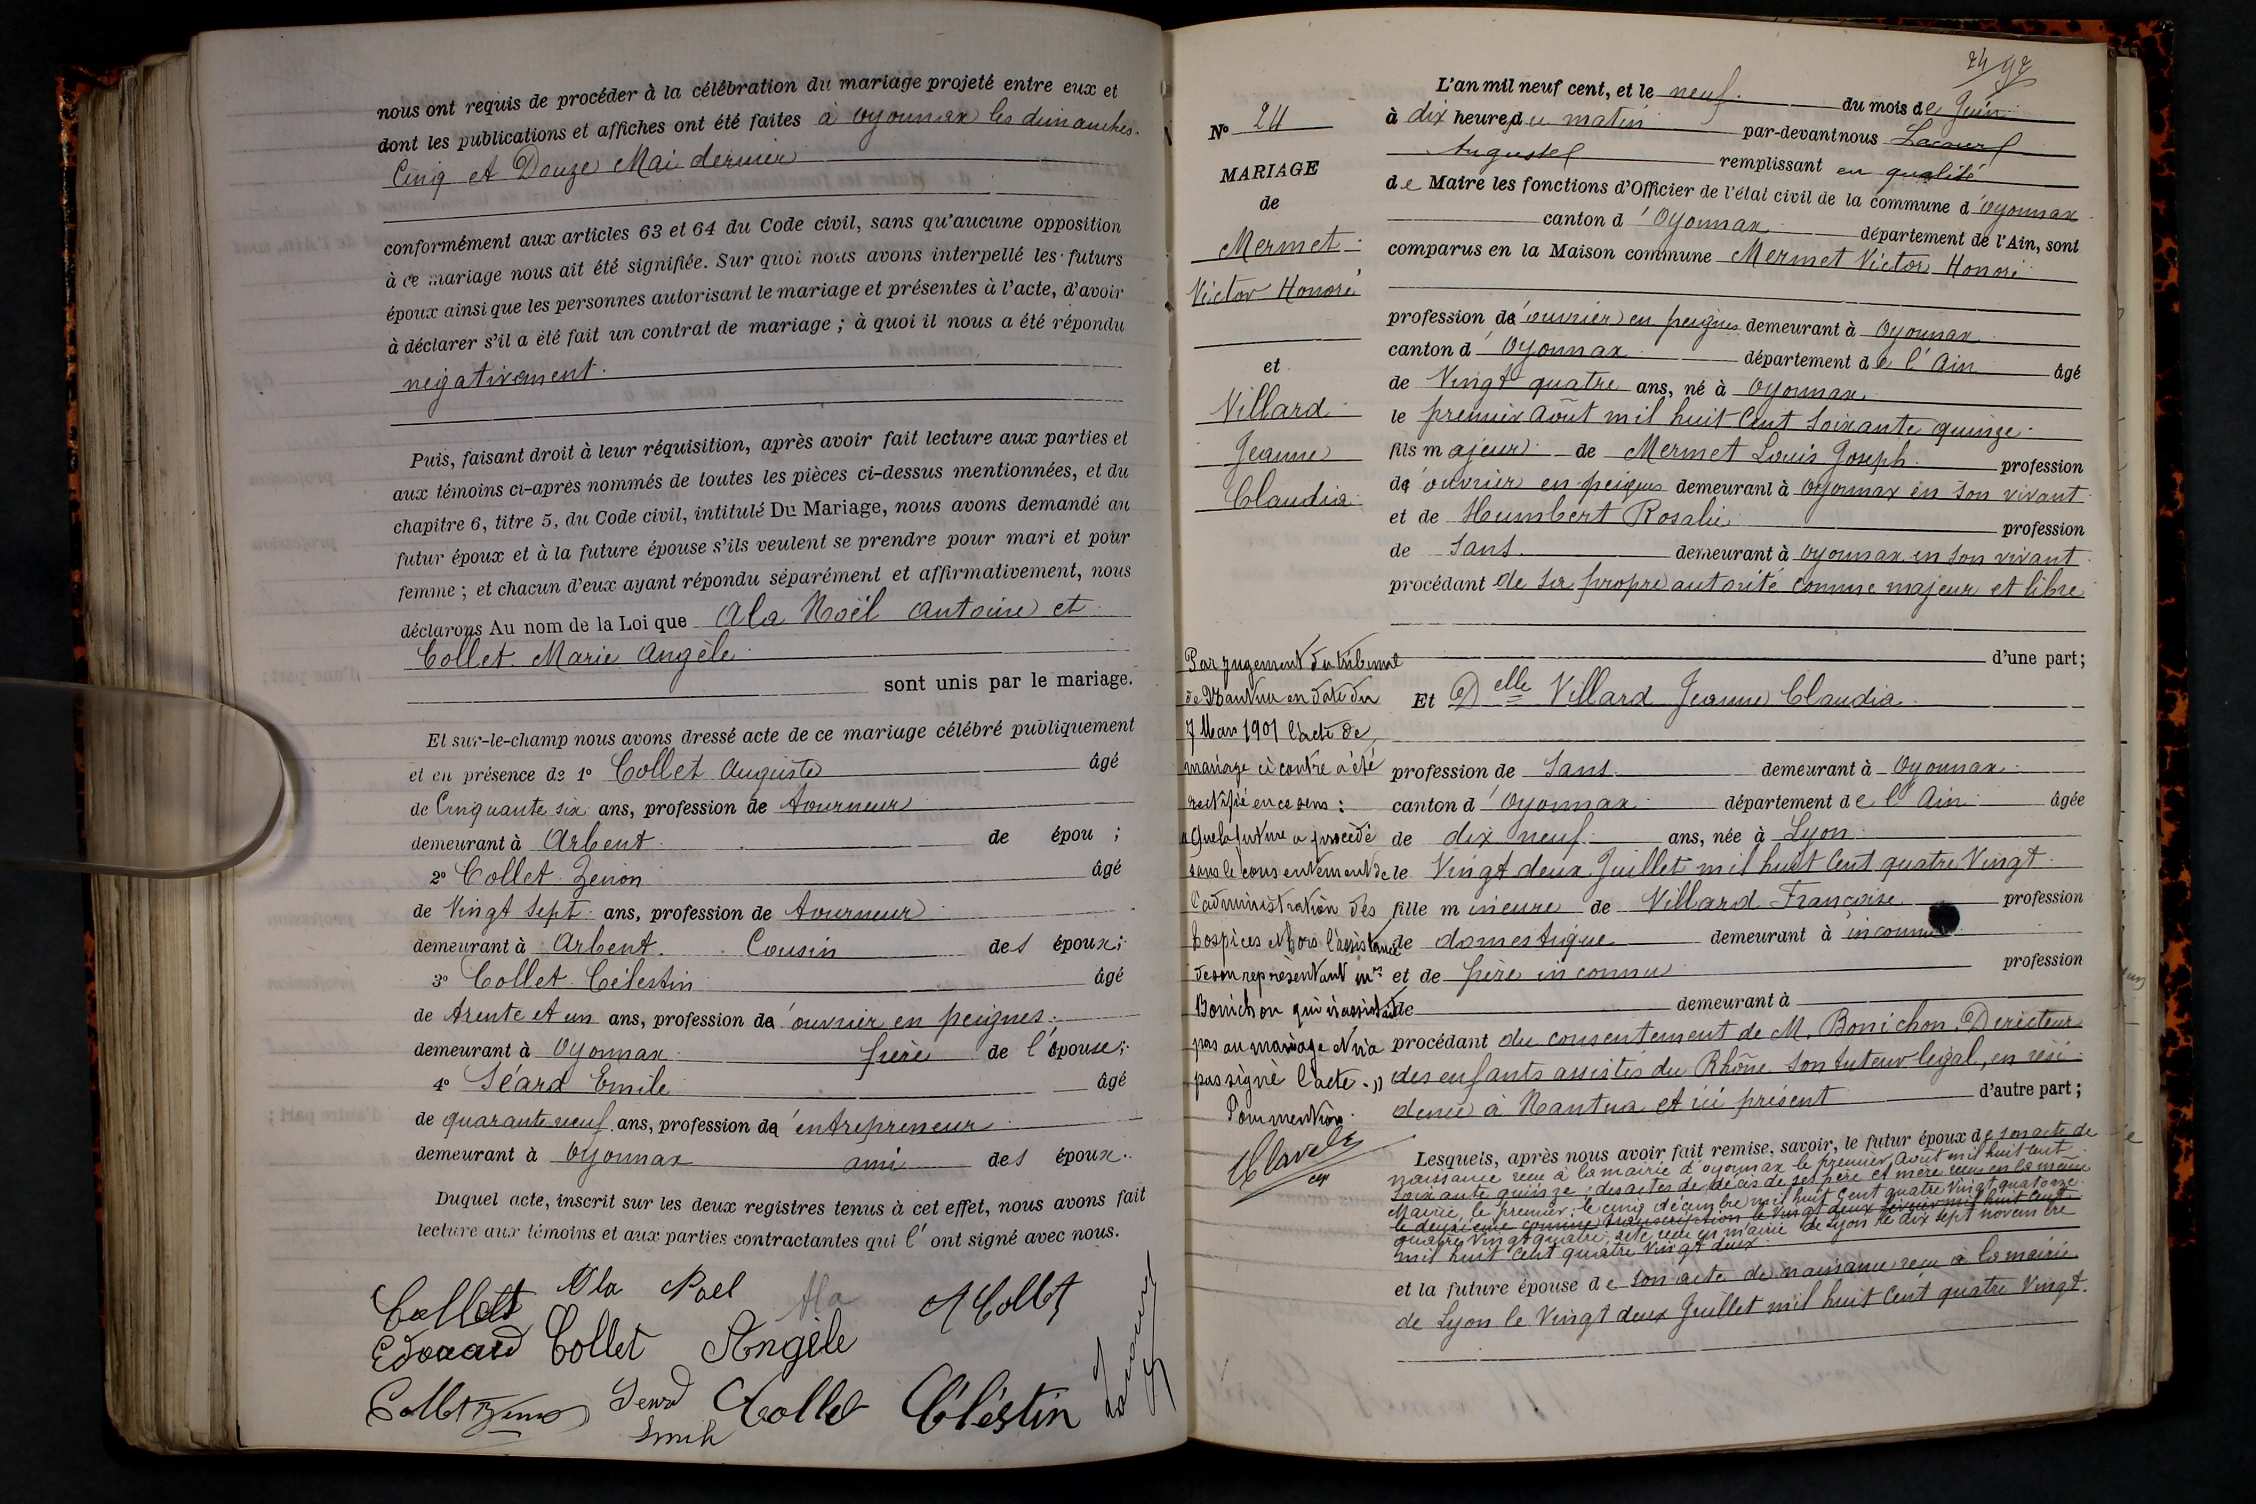 nous ont requis de procéder à la célébration du mariage projeté entre eux et
dont les publications et affiches ont été faites à Oyonnax les dimanches
Cinq et Douze Mai dernier
conformément aux articles 63 et 64 du Code civil, sans qu'aucune opposition
à ce mariage nous ait été signifiée. Sur quoi nous avons interpellé les futurs
époux ainsi que les personnes autorisant le mariage et présentes à l'acte, d'avoir
à déclarer s'il a été fait un contrat de mariage ; à quoi il nous a été répondu
négativement.
Puis, faisant droit à leur réquisition, après avoir fait lecture aux parties et
aux témoins ci-après nommés de toutes les pièces ci-dessus mentionnées, et du
chapitre 6, titre 5, du Code civil, intitulé Du Mariage, nous avons demandé au
futur époux et à la future épouse s'ils veulent se prendre pour mari et pour
femme ; et chacun d'eux ayant répondu séparément et affirmativement, nous
déclarons Au nom de la Loi que Ala Noël Antoine et
Collet Marie Angèle
sont unis par le mariage.
Et sur-le-champ nous avons dressé acte de ce mariage célébré publiquement
et en présence de 1° Collet Auguste âgé
de Cinquante six ans, profession de tourneur
demeurant à Arbent de épou ;
2° Collet Zénon âgé
de Vingt sept ans, profession de tourneur
demeurant à Arbent. Cousin des époux ;
3° Collet Célestin âgé
de trente et un ans, profession d'ouvrier en peignes
demeurant à Oyonnax frère de l'épouse ;
4° Séard Emile âgé
de quarante neuf ans, profession d'entrepreneur
demeurant à Oyonnax ami des époux.
Duquel acte, inscrit sur les deux registres tenus à cet effet, nous avons fait
lecture aux témoins et aux parties contractantes qui l'ont signé avec nous.
Collet Ala Noel Ala A Collet
Edouard Collet Angèle
Collet Zénon Seard Emile Collet Célestin
24 92
N° 24
MARIAGE
de
Mermet
Victor Honoré
et
Villard
Jeanne
Claudia
L'an mil neuf cent, et le neuf du mois de Juin
à dix heures du matin par-devant nous Lacour
Auguste remplissant en qualité
de Maire les fonctions d'Officier de l'état civil de la commune d'Oyonnax
canton d'Oyonnax département de l'Ain, sont
comparus en la Maison commune Mermet Victor Honoré
profession d'ouvrier en peignes demeurant à Oyonnax
canton d'Oyonnax département de l'Ain âgé
de Vingt quatre ans, né à Oyonnax
le premier Août mil huit Cent Soixante quinze
fils majeur de Mermet Louis Joseph profession
d'ouvrier en peignes demeurant à Oyonnax en son vivant
et de Humbert Rosalie profession
de Sans demeurant à Oyonnax en son vivant
procédant de sa propre autorité comme majeur et libre
d'une part ;
Et Delle Villard Jeanne Claudia
profession de Sans demeurant à Oyonnax
canton d'Oyonnax département de l'Ain âgée
de dix neuf ans, née à Lyon
le Vingt deux Juillet mil huit Cent quatre Vingt
fille mineure de Villard Françoise profession
de domestique demeurant à inconnu
et de père inconnu profession
de demeurant à
procédant du consentement de M. Bonichon, Derecteur
des enfants assistés du Rhône son tuteur légal, en rési
dence à Nantua et ici présent d'autre part ;
Par jugement du tribunal
de Nantua en date du
7 Mars 1901 l'acte de
mariage ci contre a été
rectifié en ce sens :
"Que la future a procédé
sans le consentement de
l'administration des
hospices et hors l'assistance
de son représentant Mr
Bonichon qui n'assistait
pas au mariage et n'a
pas signé l'acte."
Pour mention
Lesquels, après nous avoir fait remise, savoir, le futur époux de son acte de
naissance reçu à la mairie d'Oyonnax le premier Août mil huit cent
soixante quinze ; des actes de décès de ses père et mère reçus en la même
Mairie, le premier : le cinq décembre mil huit Cent quatre Vingt quatorze
le deuxième comme transcription le vingt deux février mil huit Cent
quatre Vingt quatre, acte reçu en mairie de Lyon le dix sept novembre
mil huit Cent quatre Vingt deux
et la future épouse de son acte de naissance reçu à la mairie
de Lyon le Vingt deux Juillet mil huit Cent quatre Vingt.